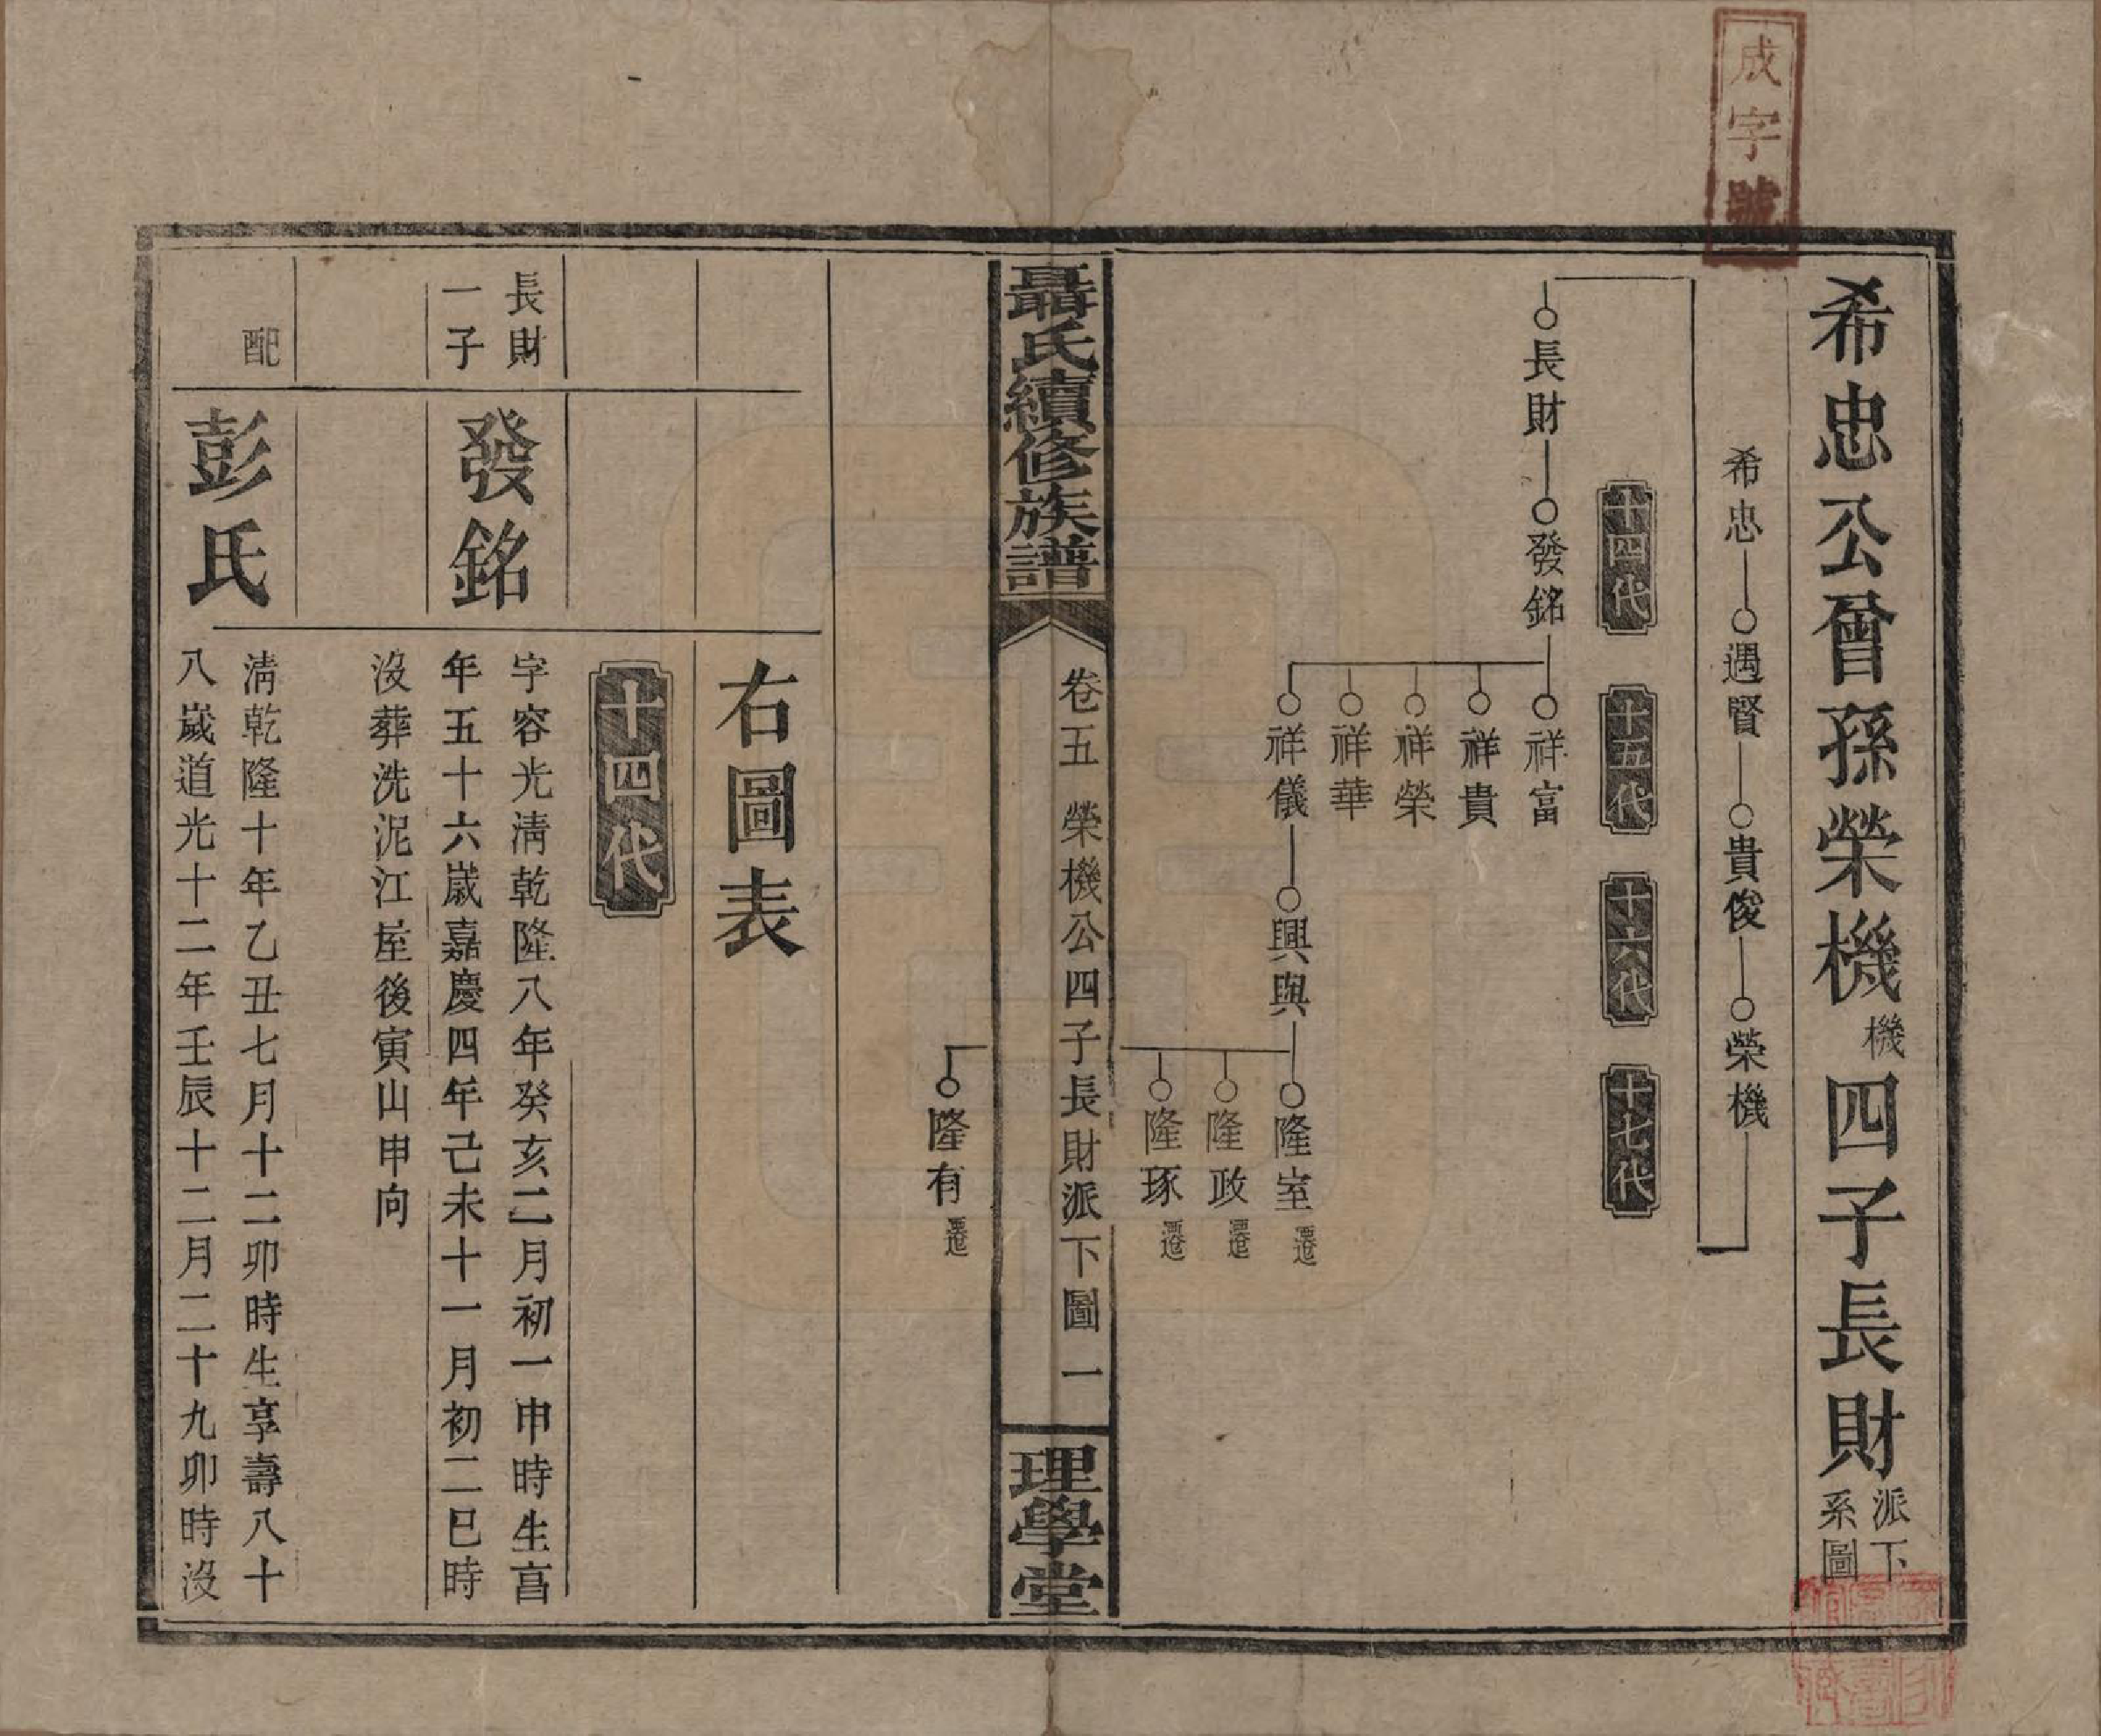 成字號
希忠公曾孫榮機機四子長財派下系圖
希忠 遇賢 貴俊 榮機
十四代 十五代 十六代 十七代
長財 發銘 祥富
祥貴
祥榮
祥華
祥儀 興與 隆室遷
隆政遷
隆琢遷
聶氏續修族譜 卷五 榮機公四子長財派下圖 一 理學堂
隆有遷
右圖表
十四代
長財
一子
發銘
字容光清乾隆八年癸亥二月初一申時生享
年五十六歲嘉慶四年己未十一月初二巳時
沒葬洗泥江屋後寅山申向
配
彭氏
清乾隆十年乙丑七月十二卯時生享壽八十
八歲道光十二年壬辰十二月二十九卯時沒